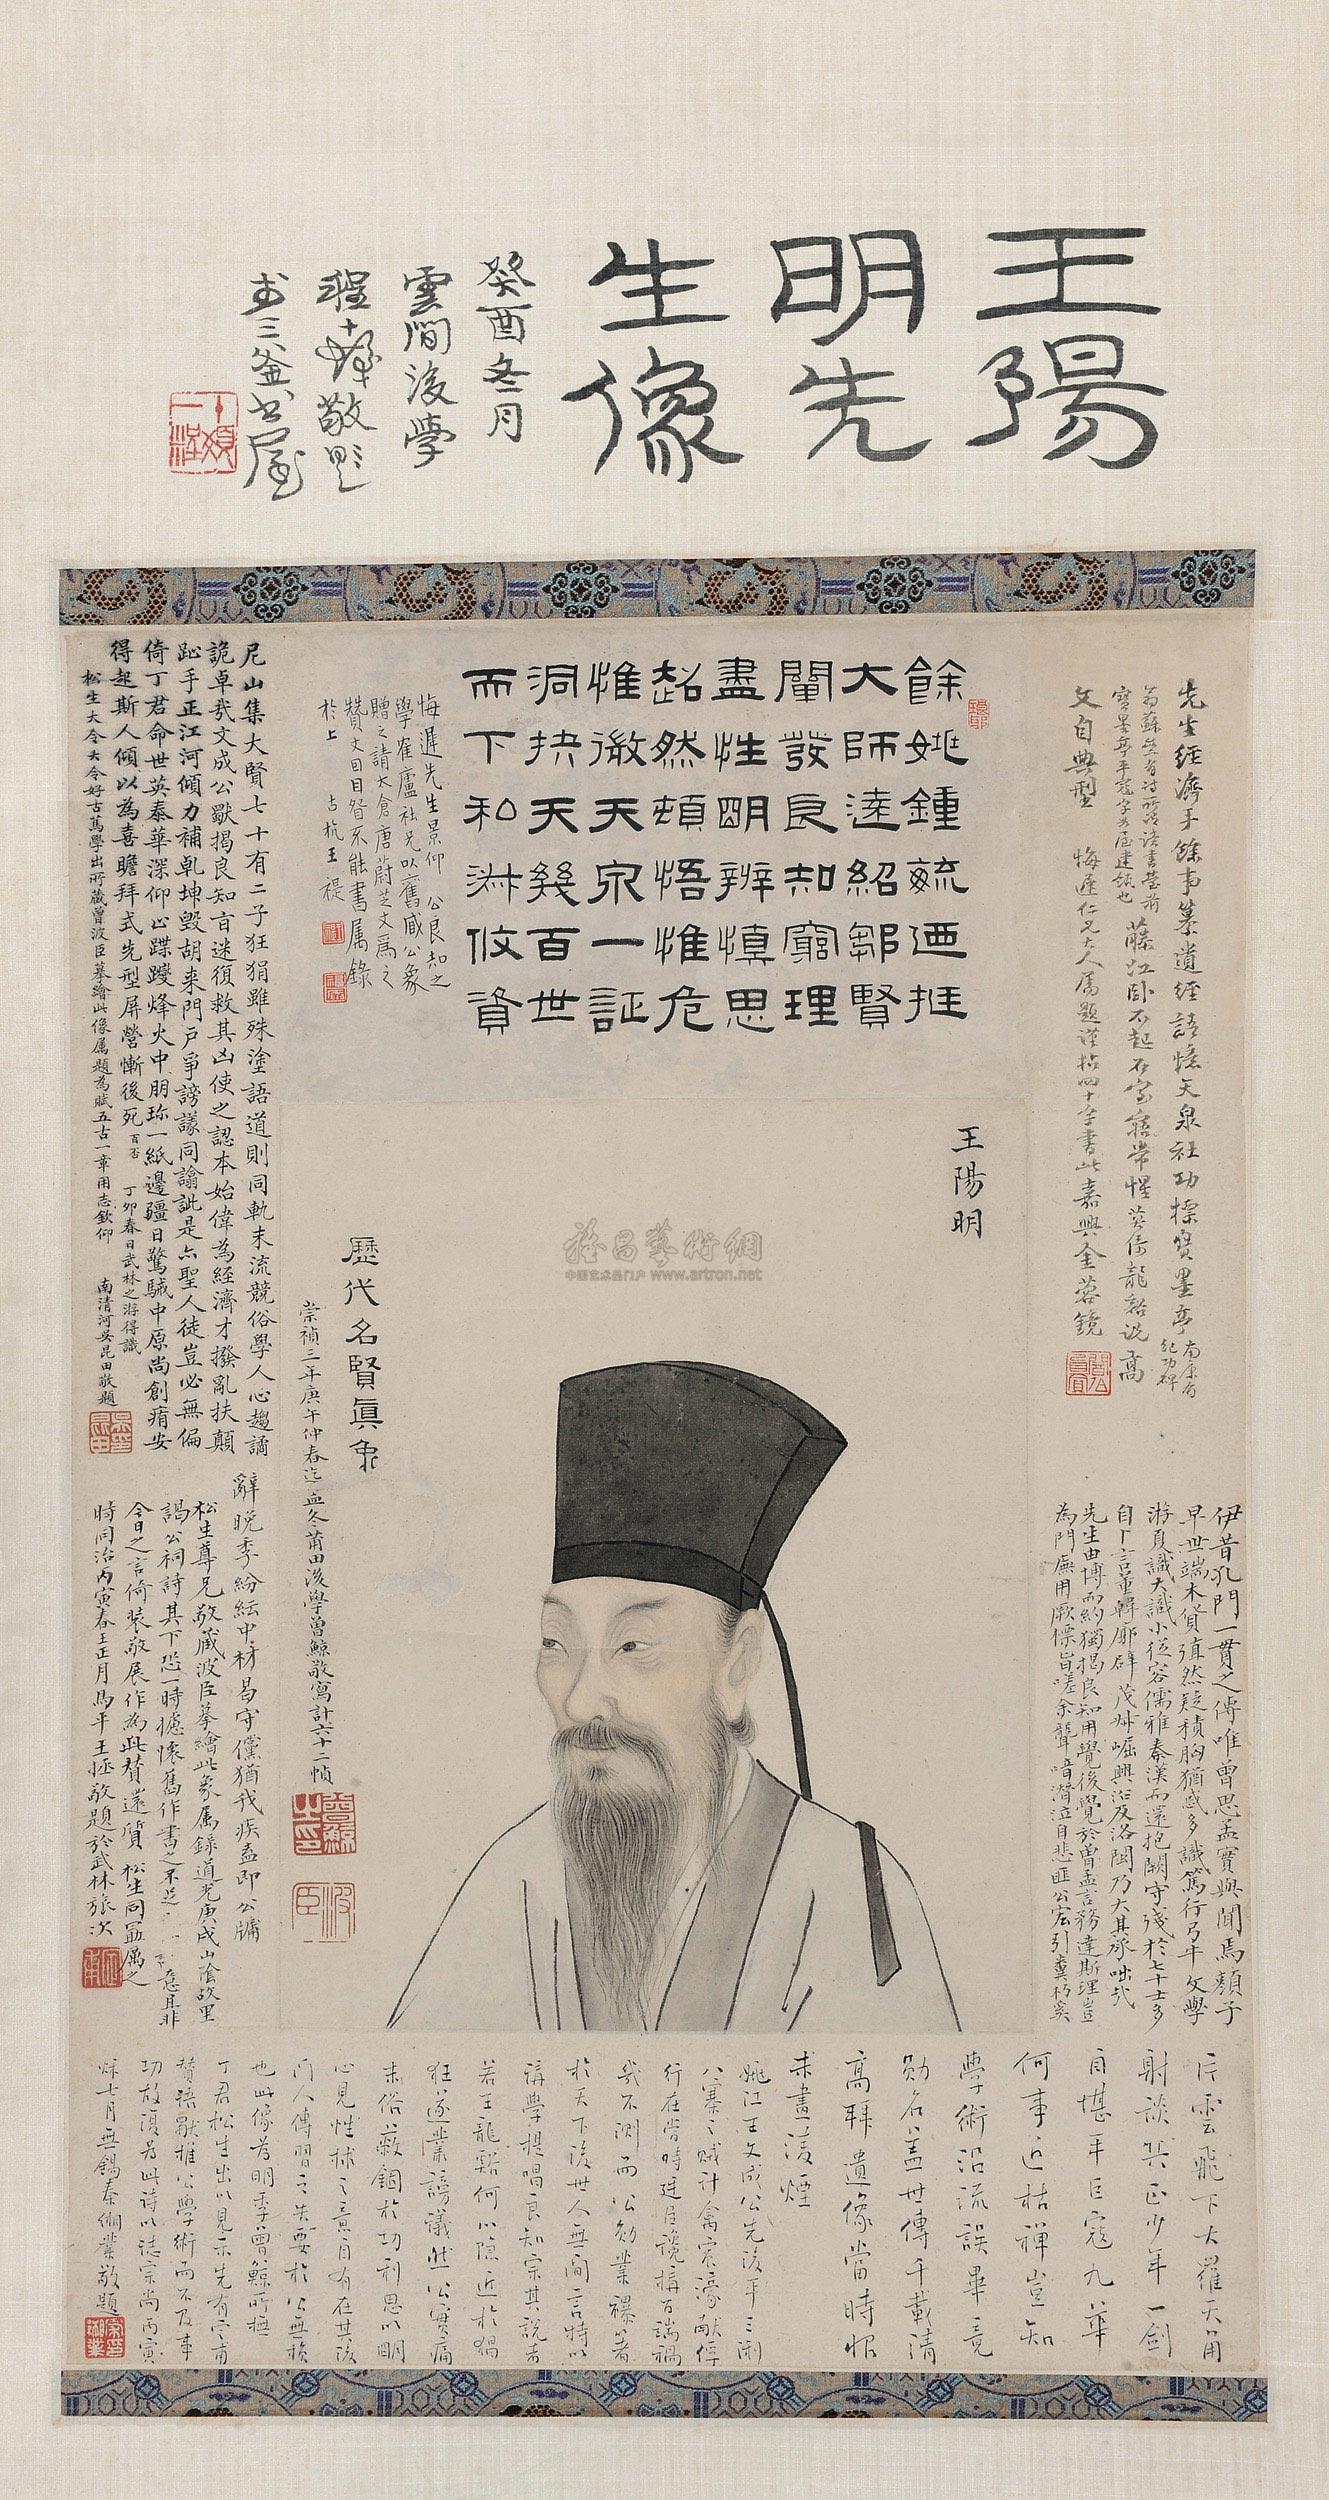 王陽
明先
生像
癸酉冬月
雲間後學
程十髮敬題
於三釜書屋
餘姚鍾毓迺挺
大師遠紹鄒賢
闡發良知窮理
盡性明辨慎思
超然頓悟惟危
惟微天泉一証
洞抉天幾百世
而下和淑攸資
悔遲先生景仰 公良知之
學隺廬社兄以舊臧公象
贈之請太倉唐蔚芝文爲之
贊丈因目眚不能書属錄
於上 古杭王禔
先生經濟手餘事纂遺經語憶天泉社功標寶墨亭
南康有紀功碑
藤江卧不起石室寤常惺莫俦龍谿説高
文自典型 悔遲仁兄大人属題謹拈四十字書此嘉興金蓉鏡
尼山集大賢七十有二子狂狷雖殊塗語道則同軌末流競俗學人心趨譎
詭卓哉文成公獸揭良知旨迷復救其凶使之認本始偉為經濟才撥亂扶顛
趾手正江河傾力補乾坤毁胡来門戸爭謗議同諭訿是亦聖人徒豈必無偏
倚丁君命世英泰華深仰止蹀躞烽火中朋珎一紙邊疆日驚駴中原尚創痏安
得起斯人傾以為喜瞻拜式先型屏營慚後死
丁卯春日武林之游得識
松生大令大令好古萬學出所藏曾波臣摹繪此像属題為賦五古一章用志欽仰 南清河吳昆田敬題
王陽明
歷代名賢真象
崇禎三年庚午仲春迄孟冬莆田後學曾鯨敬寫計六十二幀
曾鯨之印
波臣
伊昔孔門一貫之傳唯曾思孟實與聞焉顏子
早世端木貨殖然疑積胸猶惑多識篤行弓牛文學
游夏識大識小從容儒雅秦漢而還抱闕守殘於七十士多
自下言董韓廓辟茂艸崛興沿及洛閩乃大其承咄哉
先生由博而約獨揭良知用覺後覺於曾孟言務達斯理豈
為門廡用厥標旨嗟余聾喑潛泣自悲匪公宏引糞朽奚
辭晚季紛紜中材曷守儻猶我疾盍即公牗
松生尊兄敬藏波臣摹繪此象属錄道光庚戌山陰故里
謁公祠詩其下恐一時攄懷舊作書之不足 意且非
今日之言倚装敬展作為此贊還質 松生同年属之
時同治丙寅春王正月馬平王拯敬題於武林旅次
片雲飛下大羅天開
射談兵正少年一劍
自堪平巨寇九華
何事近枯禪豈知
學術沿流誤畢竟
勛名蓋世傳千載清
高拜遺像當時恨
未畫淩煙
姚江王文成公先後平三浰
八寨之賊計禽宸濠獻俘
行在當時廷臣讒搆百端禍
幾不測而公勛業襮著
於天下後世人無間言特以
講學提唱良知宗其說者
若王龍谿何心隱近於猖
狂遂叢謗議然公實痛
末俗蔽錮於功利思以明
心見性救之意自有在其後
門人傳習之失要於公無損
也此像為明季曾鯨所橅
丁君松生出以見示先有定甫
贊語獸推公學術而不及事
功故復為此詩以誌宗尚丙寅
秋七月無錫秦緗業敬題
雅昌藝術網
中国艺术品门户 www.artron.net